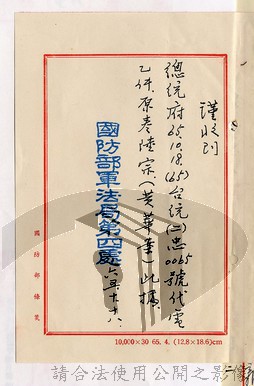 謹收到
總統府65.10.18(65)台統(二)忠0065號代電
乙件.原卷陸宗(黃華等)此據
國防部軍法局第四處
國防部條箋
10,000×30 65. 4. (12.8×18.6)cm
請合法使用公開之影像